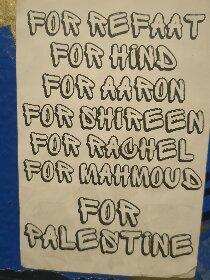 FOR REFAAT
FOR HIND
FOR AARON
FOR SHIREEN
FOR RACHEL
FOR MAHMOUD
FOR
PALESTINE